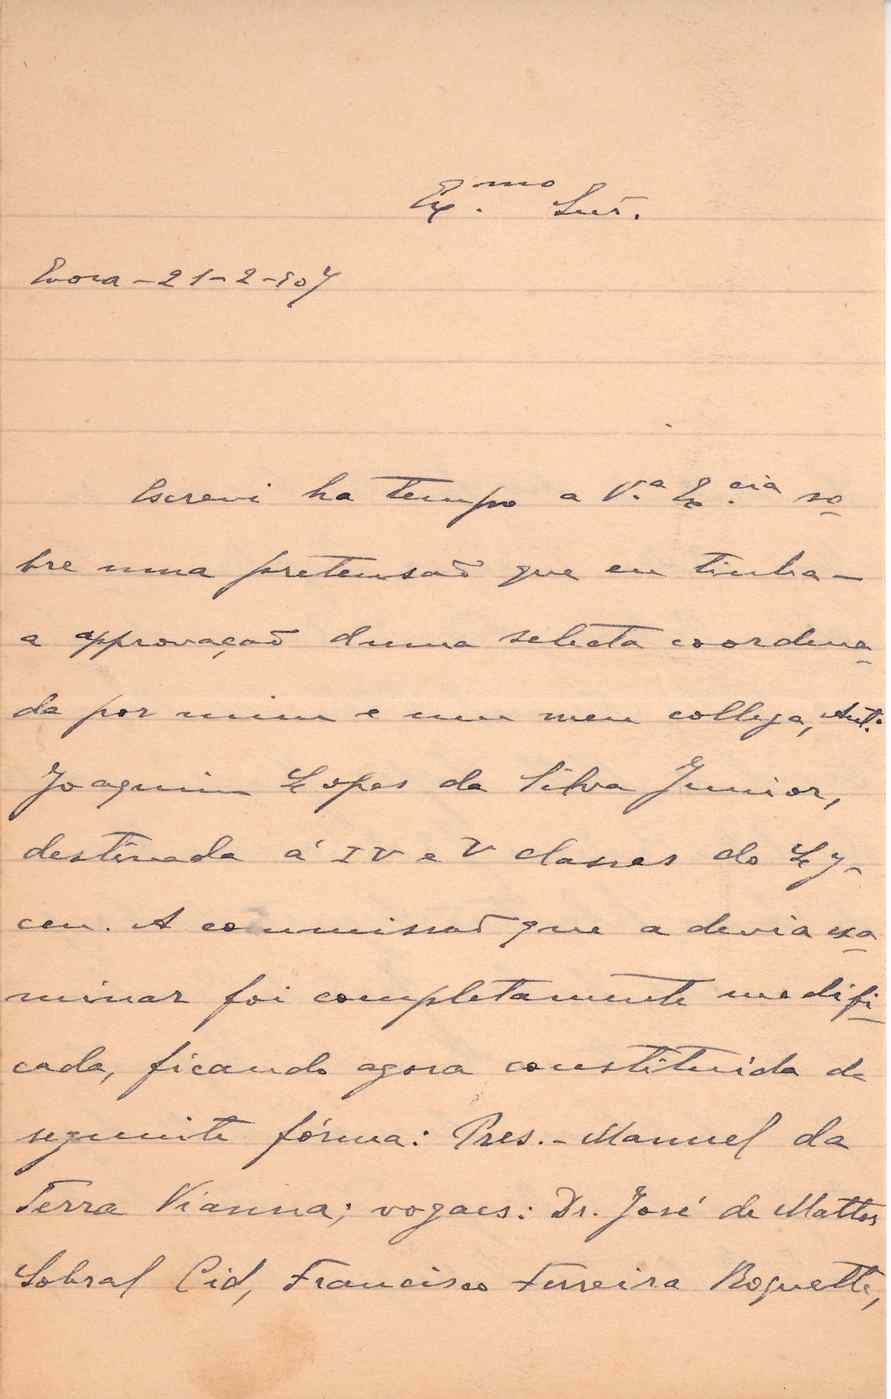 Ex.mo Snr.
Evora - 21-2-907
Escrevi ha tempo a V.a Ex.cia so-
bre uma pretensão que eu tinha -
a approvação duma selecta coordena-
da por mim e um meu collega, Ant.
Joaquim Lopes da Silva Junior,
destinada á IV e V classes do Ly-
ceu. A commissão que a devia exa-
minar foi completamente modifi-
cada, ficando agora constituida da
seguinte fórma: Pres. - Manuel da
Terra Vianna; vogaes: Dr. José de Mattos
Sobral Cid, Francisco Ferreira Roquette,